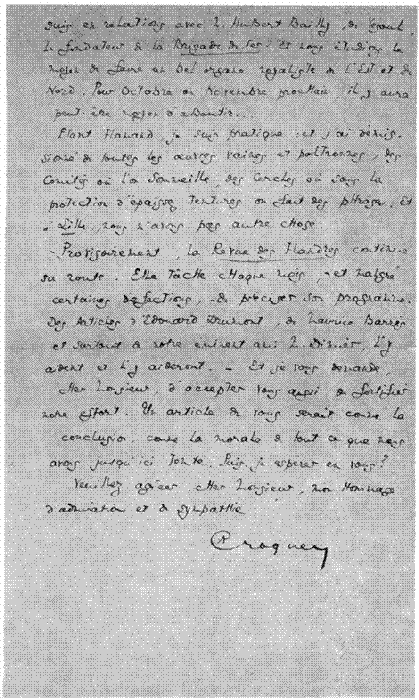 suis en relations avec M. Hubert Bailly, de Épinal,
le fondateur de la Brigade de Fer. Et nous étudions le
moyen de faire un bel organe royaliste de l'Est et du
Nord. Pour Octobre ou Novembre prochain il y aura
peut-être moyen d'aboutir...
Étant Flamand, je suis pratique et j'ai démis-
sionné de toutes les œuvres vaines et poltronnes, des
Comités où l'on sommeille, des Cercles où sous la
protection d'épaisses tentures on fait des phrases. Et
à Lille, nous n'avons pas autre chose
Provisoirement, la Revue des Flandres continue
sa route. Elle tâche chaque mois, et malgré
certaines défections, de préciser son programme.
Des Articles d'Édouard Drumont, de Maurice Barrès
et surtout de votre ami M. , l'y
aident et l'y aideront. - Et je vous demande,
cher Monsieur, d'accepter vous aussi de fortifier
notre effort. Un article de vous serait comme la
conclusion, comme la morale de tout ce que nous
avons jusqu'ici tenté. Puis-je espérer en vous?
Veuillez agréer cher Monsieur, mon hommage
d'admiration et de sympathie
Croquey